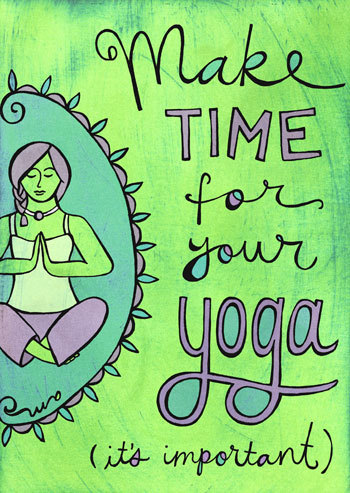 Make
TIME
for
your
yoga
(it's important)